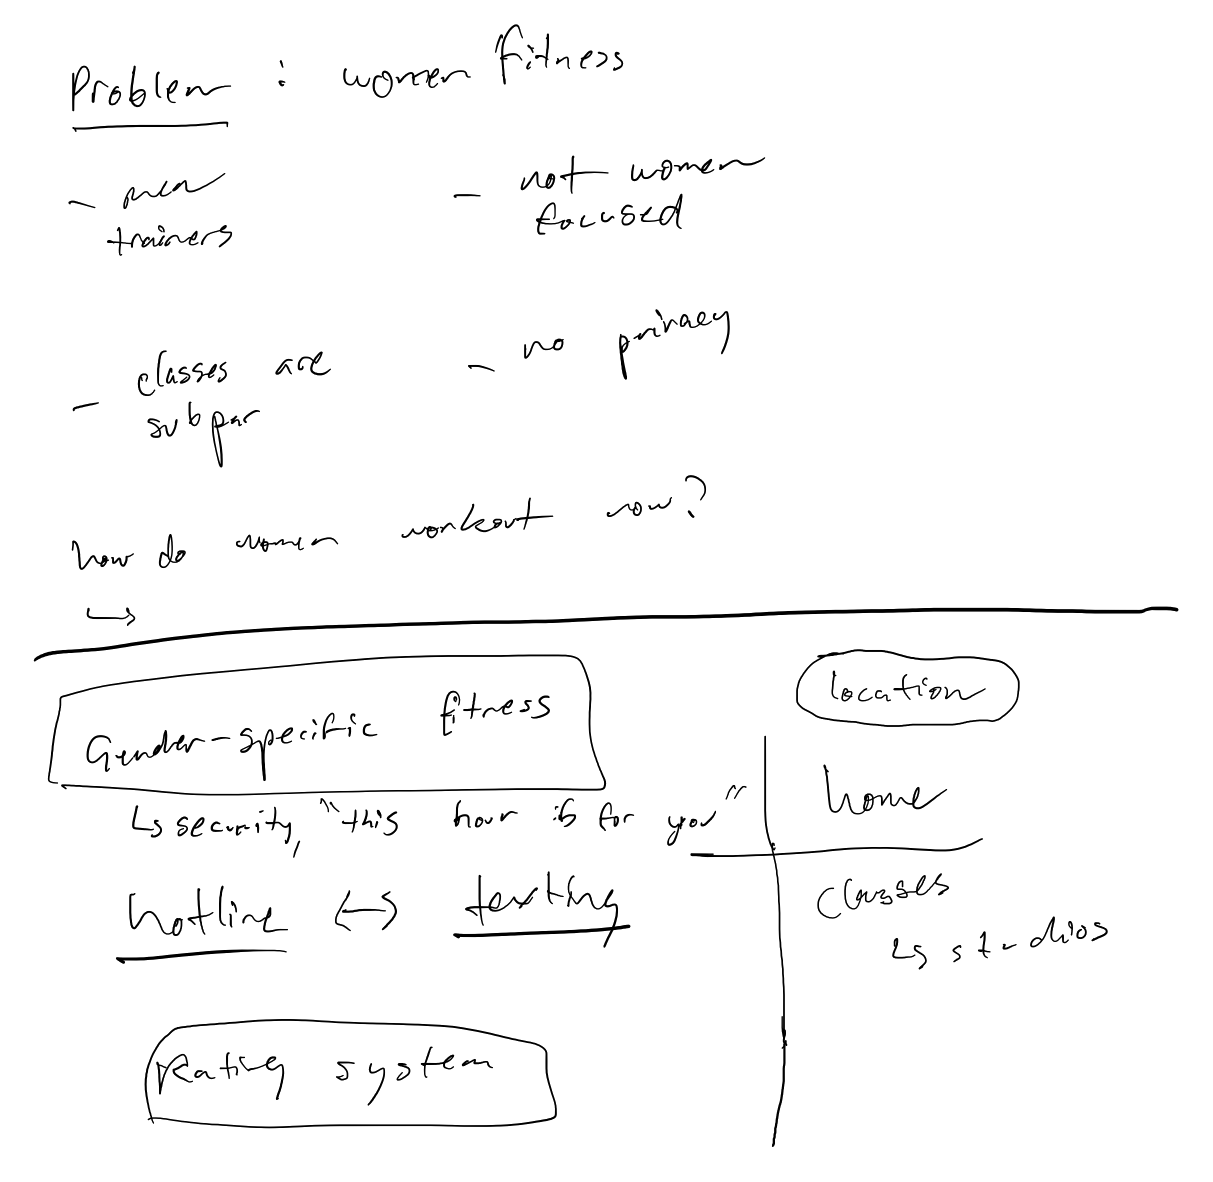 Problem : women fitness
- men trainers
- not women focused
- classes are subpar
- no privacy
how do women workout now?
↳
Gender-specific fitness
↳ security, "this hour is for you"
hotline ↔ texting
Rating system
location
home
classes
↳ studios